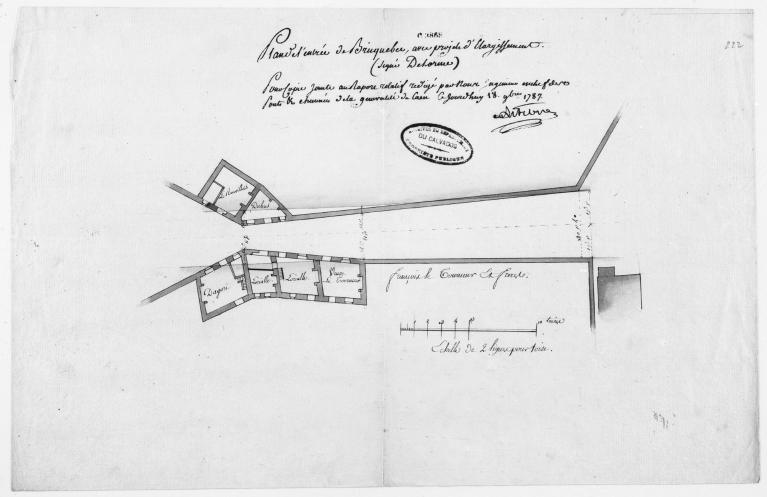 C 3868
222
Plan de l'entrée de Bricquebec, avec projets d'Elargissement.
(signé Delorme)
Pour Copie Jointe au Raport relatif redigé par Nous Ingenieur en chef des
Ponts & chaussées de la generalité de Caen Ce Jourdhuy 18. 9bre 1787.
Lefebvre
ARCHIVES DU DEPARTEMENT
DU CALVADOS
PROPRIÉTÉ PUBLIQUE
Dubost
Dagori
Lecallé
Lecallé
Veuve
le Couvreur
françois le Couvreur La
toises
Echelle de 2 lignes pour toise.